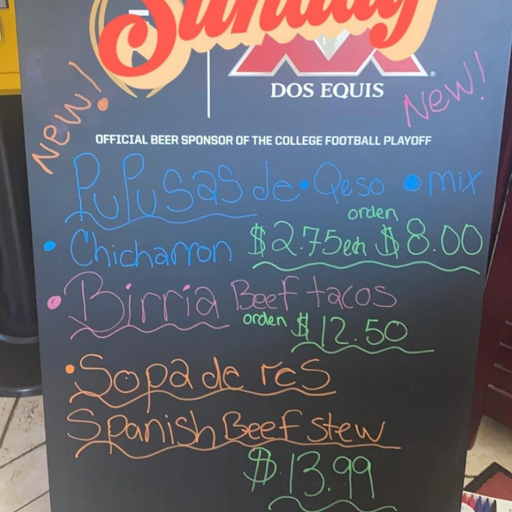 Sunday
DOS EQUIS
New!
New!
OFFICIAL BEER SPONSOR OF THE COLLEGE FOOTBALL PLAYOFF
PUPUSAS de • Qeso • mix
• Chicharron $2.75 each orden $8.00
• Birria Beef tacos
orden $12.50
• Sopa de res
Spanish Beef stew
$13.99